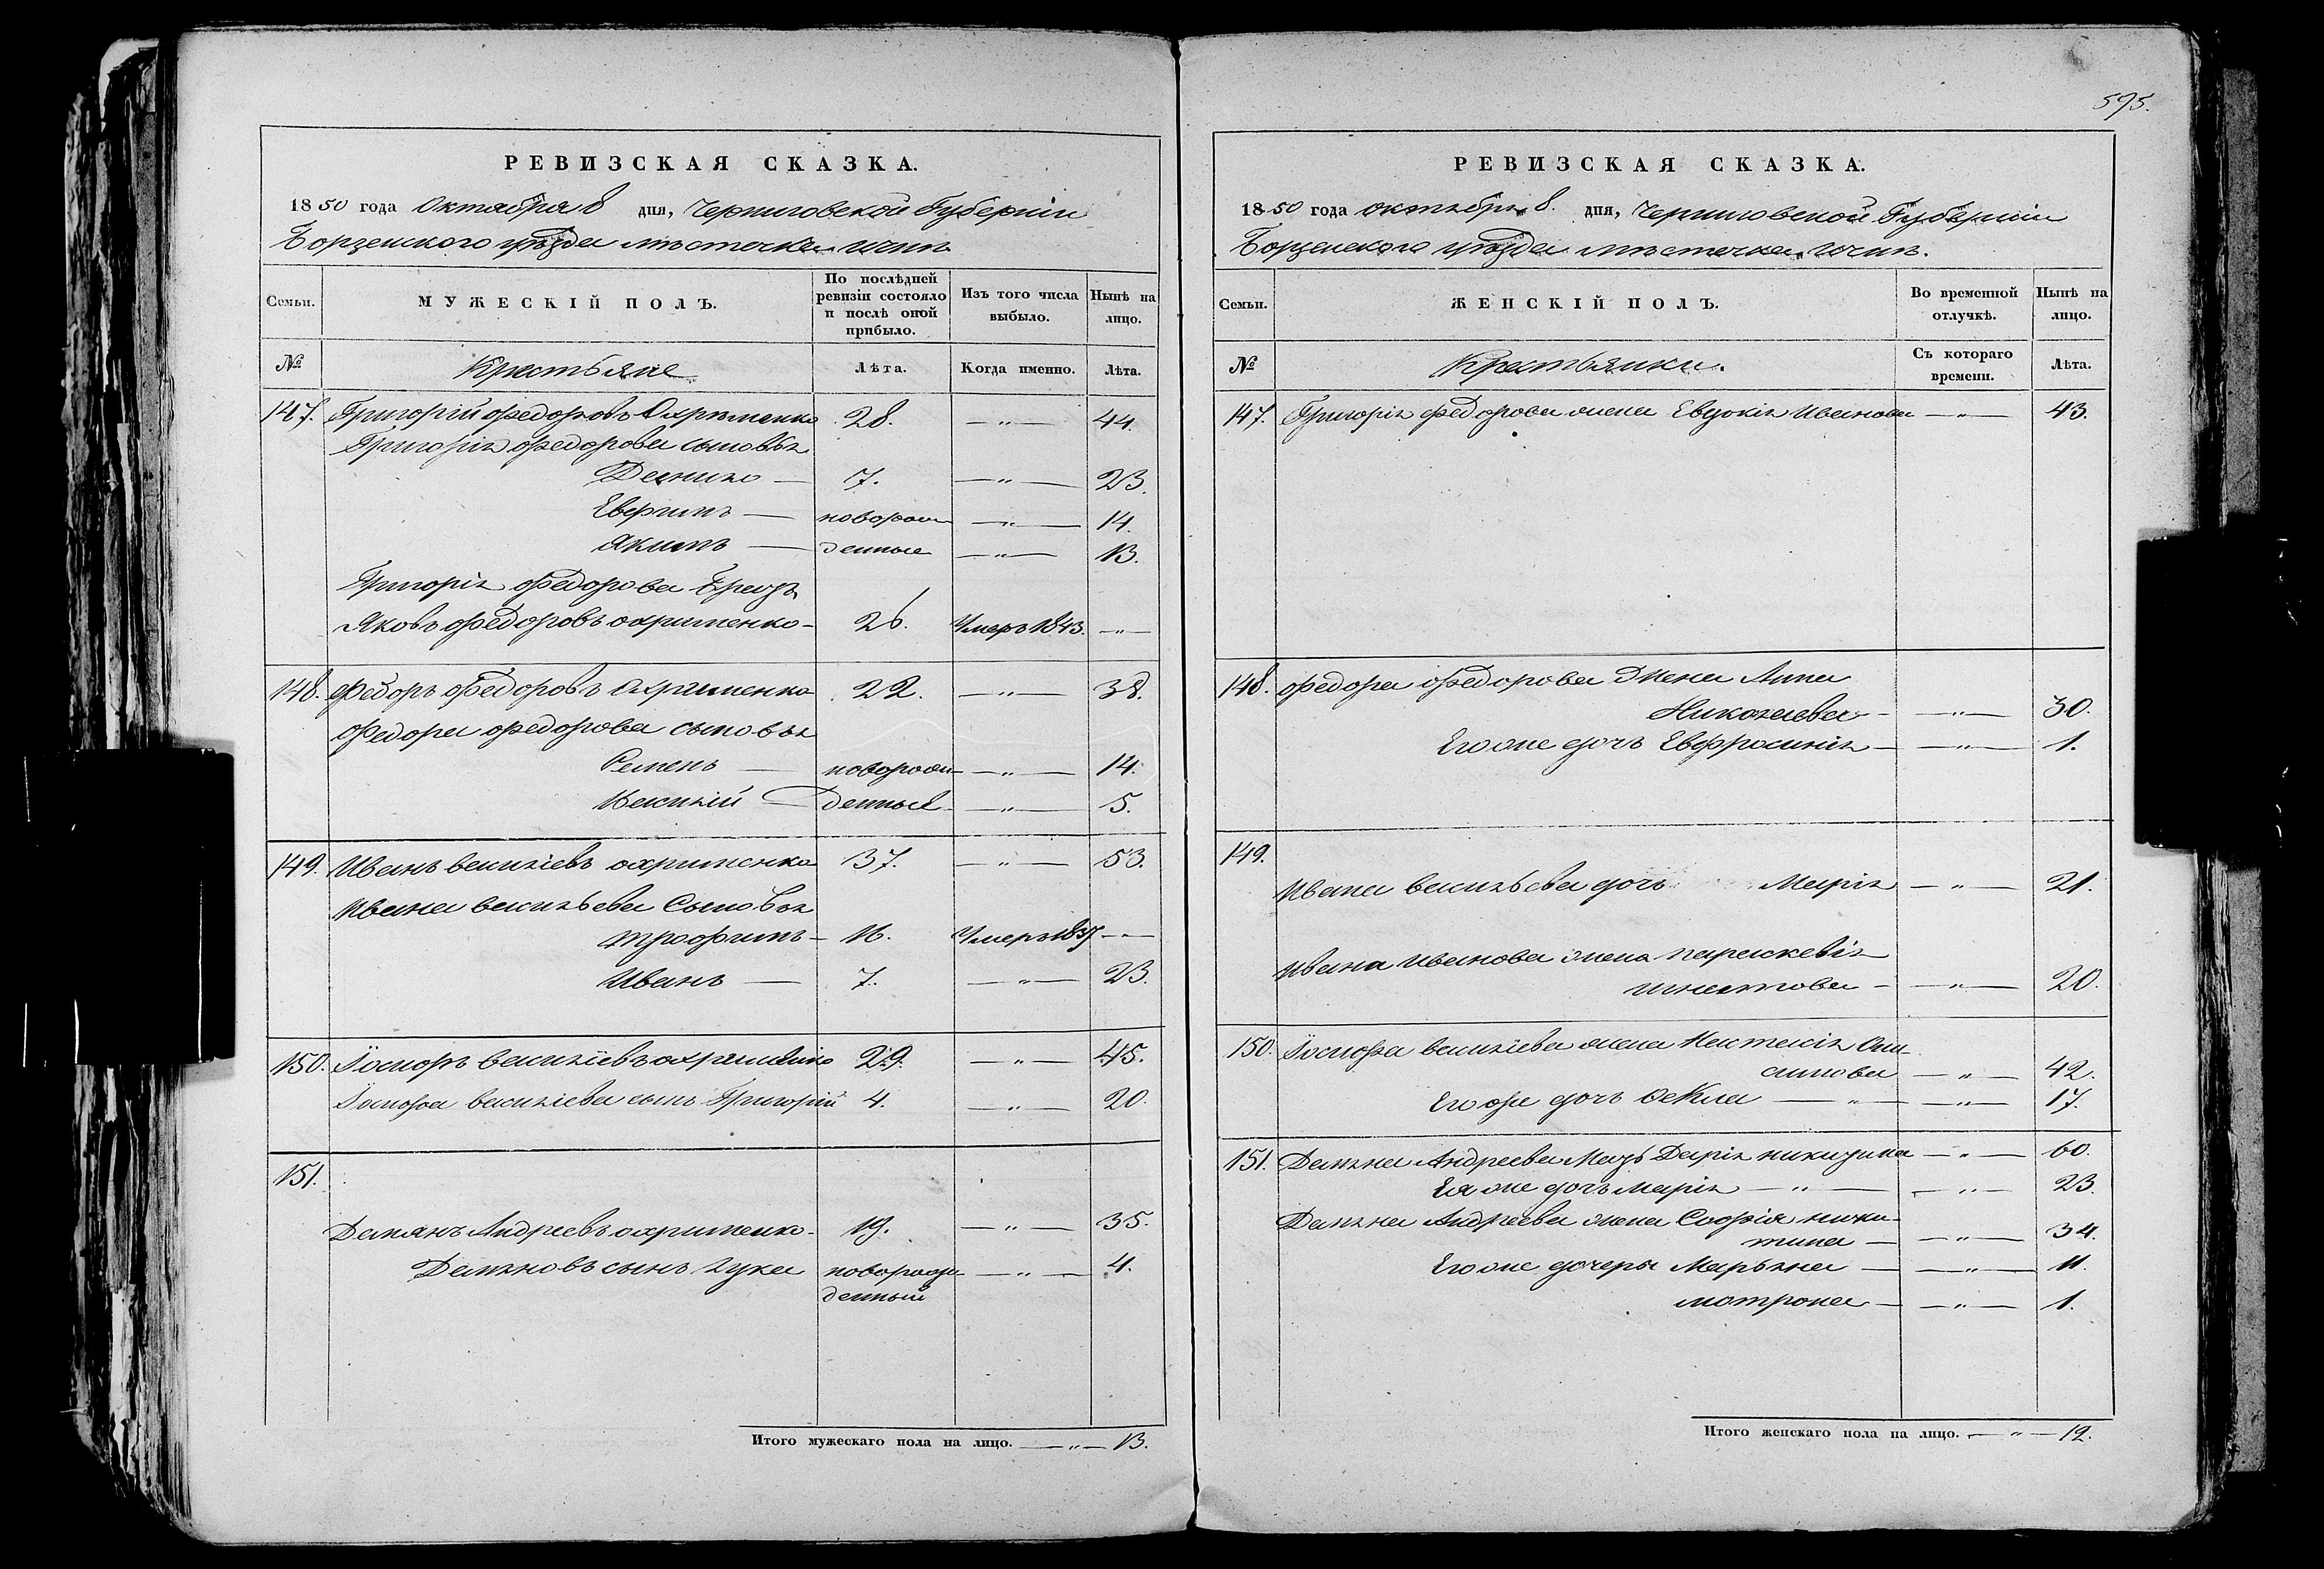 РЕВИЗСКАЯ СКАЗКА.
1850 года Октября 8 дня, Черниговской Губерніи
Борзенского уѣзда мѣстечка Ични
Семьи. МУЖЕСКІЙ ПОЛЪ. По послѣдней ревизіи состояло и послѣ оной прибыло. Изъ того числа выбыло. Нынѣ на лицо.
№ Крестьяне Лѣта. Когда именно. Лѣта.
147. Григорій Федоровъ Охрѣменко 28. — " — 44.
Григорія Федорова сыновья
Данило — 7. — " — 23.
— новорож — " — 14.
Акимъ — денные — " — 13.
Григорія Федорова Братъ
Яковъ Федоровъ охрименко - 26. Умеръ 1843. — " —
148. Федоръ Федоровъ Охрименко 22. — " — 38.
Федора Федорова сыновья
Семенъ — новорож — " — 14.
Василій — денные — " — 5.
149. Иванъ Василіевъ охрименко 37. — " — 53.
Ивана Васильева Сыновья
Трофимъ - 16. Умеръ 1837 — " —
Иванъ — 7. — " — 23.
150. Іосифъ Василіевъ охрименко 29. — " — 45.
Іосифа Василіева сынъ Григорій 4. — " — 20.
151.
Демянъ Андреевъ охрименко - 19. — " — 35.
Демяновъ сынъ Лука новорож — " — 4.
денный
Итого мужескаго пола на лицо. — " — 13.
595.
РЕВИЗСКАЯ СКАЗКА.
1850 года октября 8. дня, Черниговской Губерніи
Борзенского уѣзда мѣстечка Ични.
Семьи. ЖЕНСКІЙ ПОЛЪ. Во временной отлучкѣ. Нынѣ на лицо.
№ Крестьянки. Съ котораго времени. Лѣта.
147. Григорія Федорова жена Евдокія Иванова — " — 43.
148. Федора Федорова Жена Анна
Николаева - — " — 30.
Его же дочь Евфросинія — " — 1.
149.
Ивана Васильева дочь Марія — " — 21.
Ивана Иванова жена Параскевія
Игнатова - — " — 20.
150. Іосифа Василіева жена Настасія
— " — 42.
Его же дочь Фекла — " — — " — 17.
151. Демяна Андреева Мать Дарія никитина — " — 60.
Ея же дочь Марія — " — — " — 23.
Демяна Андреева жена Софія ники-
тина — — " — 34.
Его же дочери Марьяна — — " — 11.
Мотрона — — " — 1.
Итого женскаго пола на лицо. — " — 12.